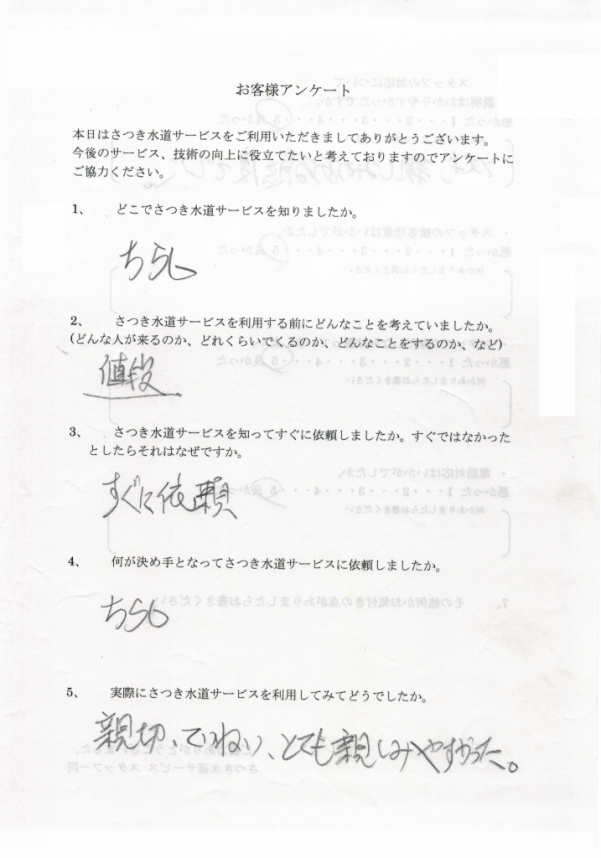 お客様アンケート
本日はさつき水道サービスをご利用いただきましてありがとうございます。
今後のサービス、技術の向上に役立てたいと考えておりますのでアンケートに
ご協力ください。
1、 どこでさつき水道サービスを知りましたか。
ちらし
2、 さつき水道サービスを利用する前にどんなことを考えていましたか。
(どんな人が来るのか、どれくらいでくるのか、どんなことをするのか、など)
値段
3、 さつき水道サービスを知ってすぐに依頼しましたか。すぐではなかった
としたらそれはなぜですか。
すぐに依頼
4、 何が決め手となってさつき水道サービスに依頼しましたか。
ちらし
5、 実際にさつき水道サービスを利用してみてどうでしたか。
親切、ていねい、とても親しみやすかった。